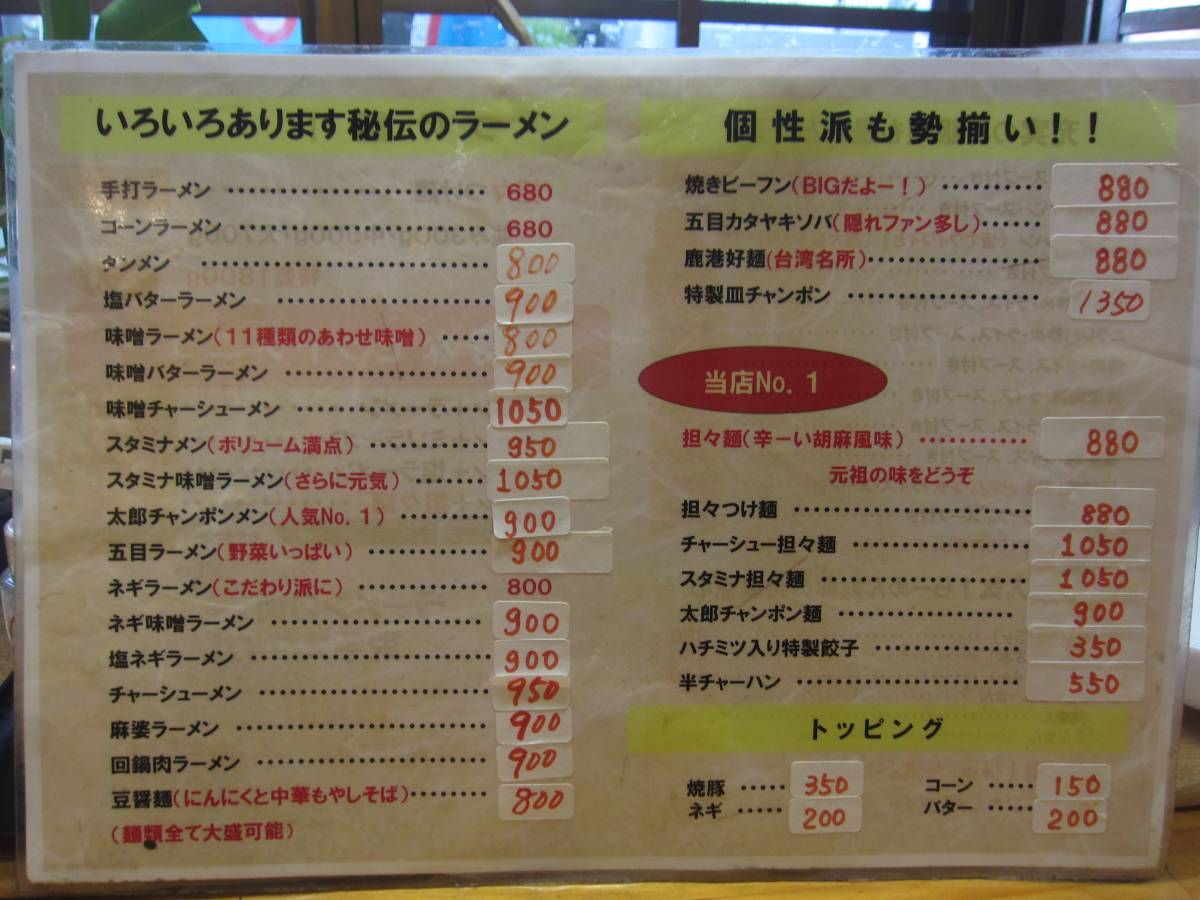 いろいろあります秘伝のラーメン
手打ラーメン ………………………… 680
コーンラーメン ………………………… 680
タンメン ………………………… 800
塩バターラーメン ………………………… 900
味噌ラーメン(11種類のあわせ味噌) …… 800
味噌バターラーメン ………………………… 900
味噌チャーシューメン ………………………… 1050
スタミナメン(ボリューム満点) ……………… 950
スタミナ味噌ラーメン(さらに元気) ………… 1050
太郎チャンポンメン(人気No.1) ………… 900
五目ラーメン(野菜いっぱい) ……………… 900
ネギラーメン(こだわり派に) ……………… 800
ネギ味噌ラーメン ………………………… 900
塩ネギラーメン ………………………… 900
チャーシューメン ………………………… 950
麻婆ラーメン ………………………… 900
回鍋肉ラーメン ………………………… 900
豆醤麺(にんにくと中華もやしそば) ……… 800
(麺類全て大盛可能)
個性派も勢揃い!!
焼きビーフン(BIGだよー!) ………… 880
五目カタヤキソバ(隠れファン多し) …… 880
鹿港好麺(台湾名所) ………………… 880
特製皿チャンポン ………………… 1350
当店No.1
担々麺(辛ーい胡麻風味) ………… 880
元祖の味をどうぞ
担々つけ麺 ………………………… 880
チャーシュー担々麺 ………………… 1050
スタミナ担々麺 ………………… 1050
太郎チャンポン麺 ………………… 900
ハチミツ入り特製餃子 ……………… 350
半チャーハン ………………………… 550
トッピング
焼豚 …… 350 コーン …… 150
ネギ …… 200 バター …… 200